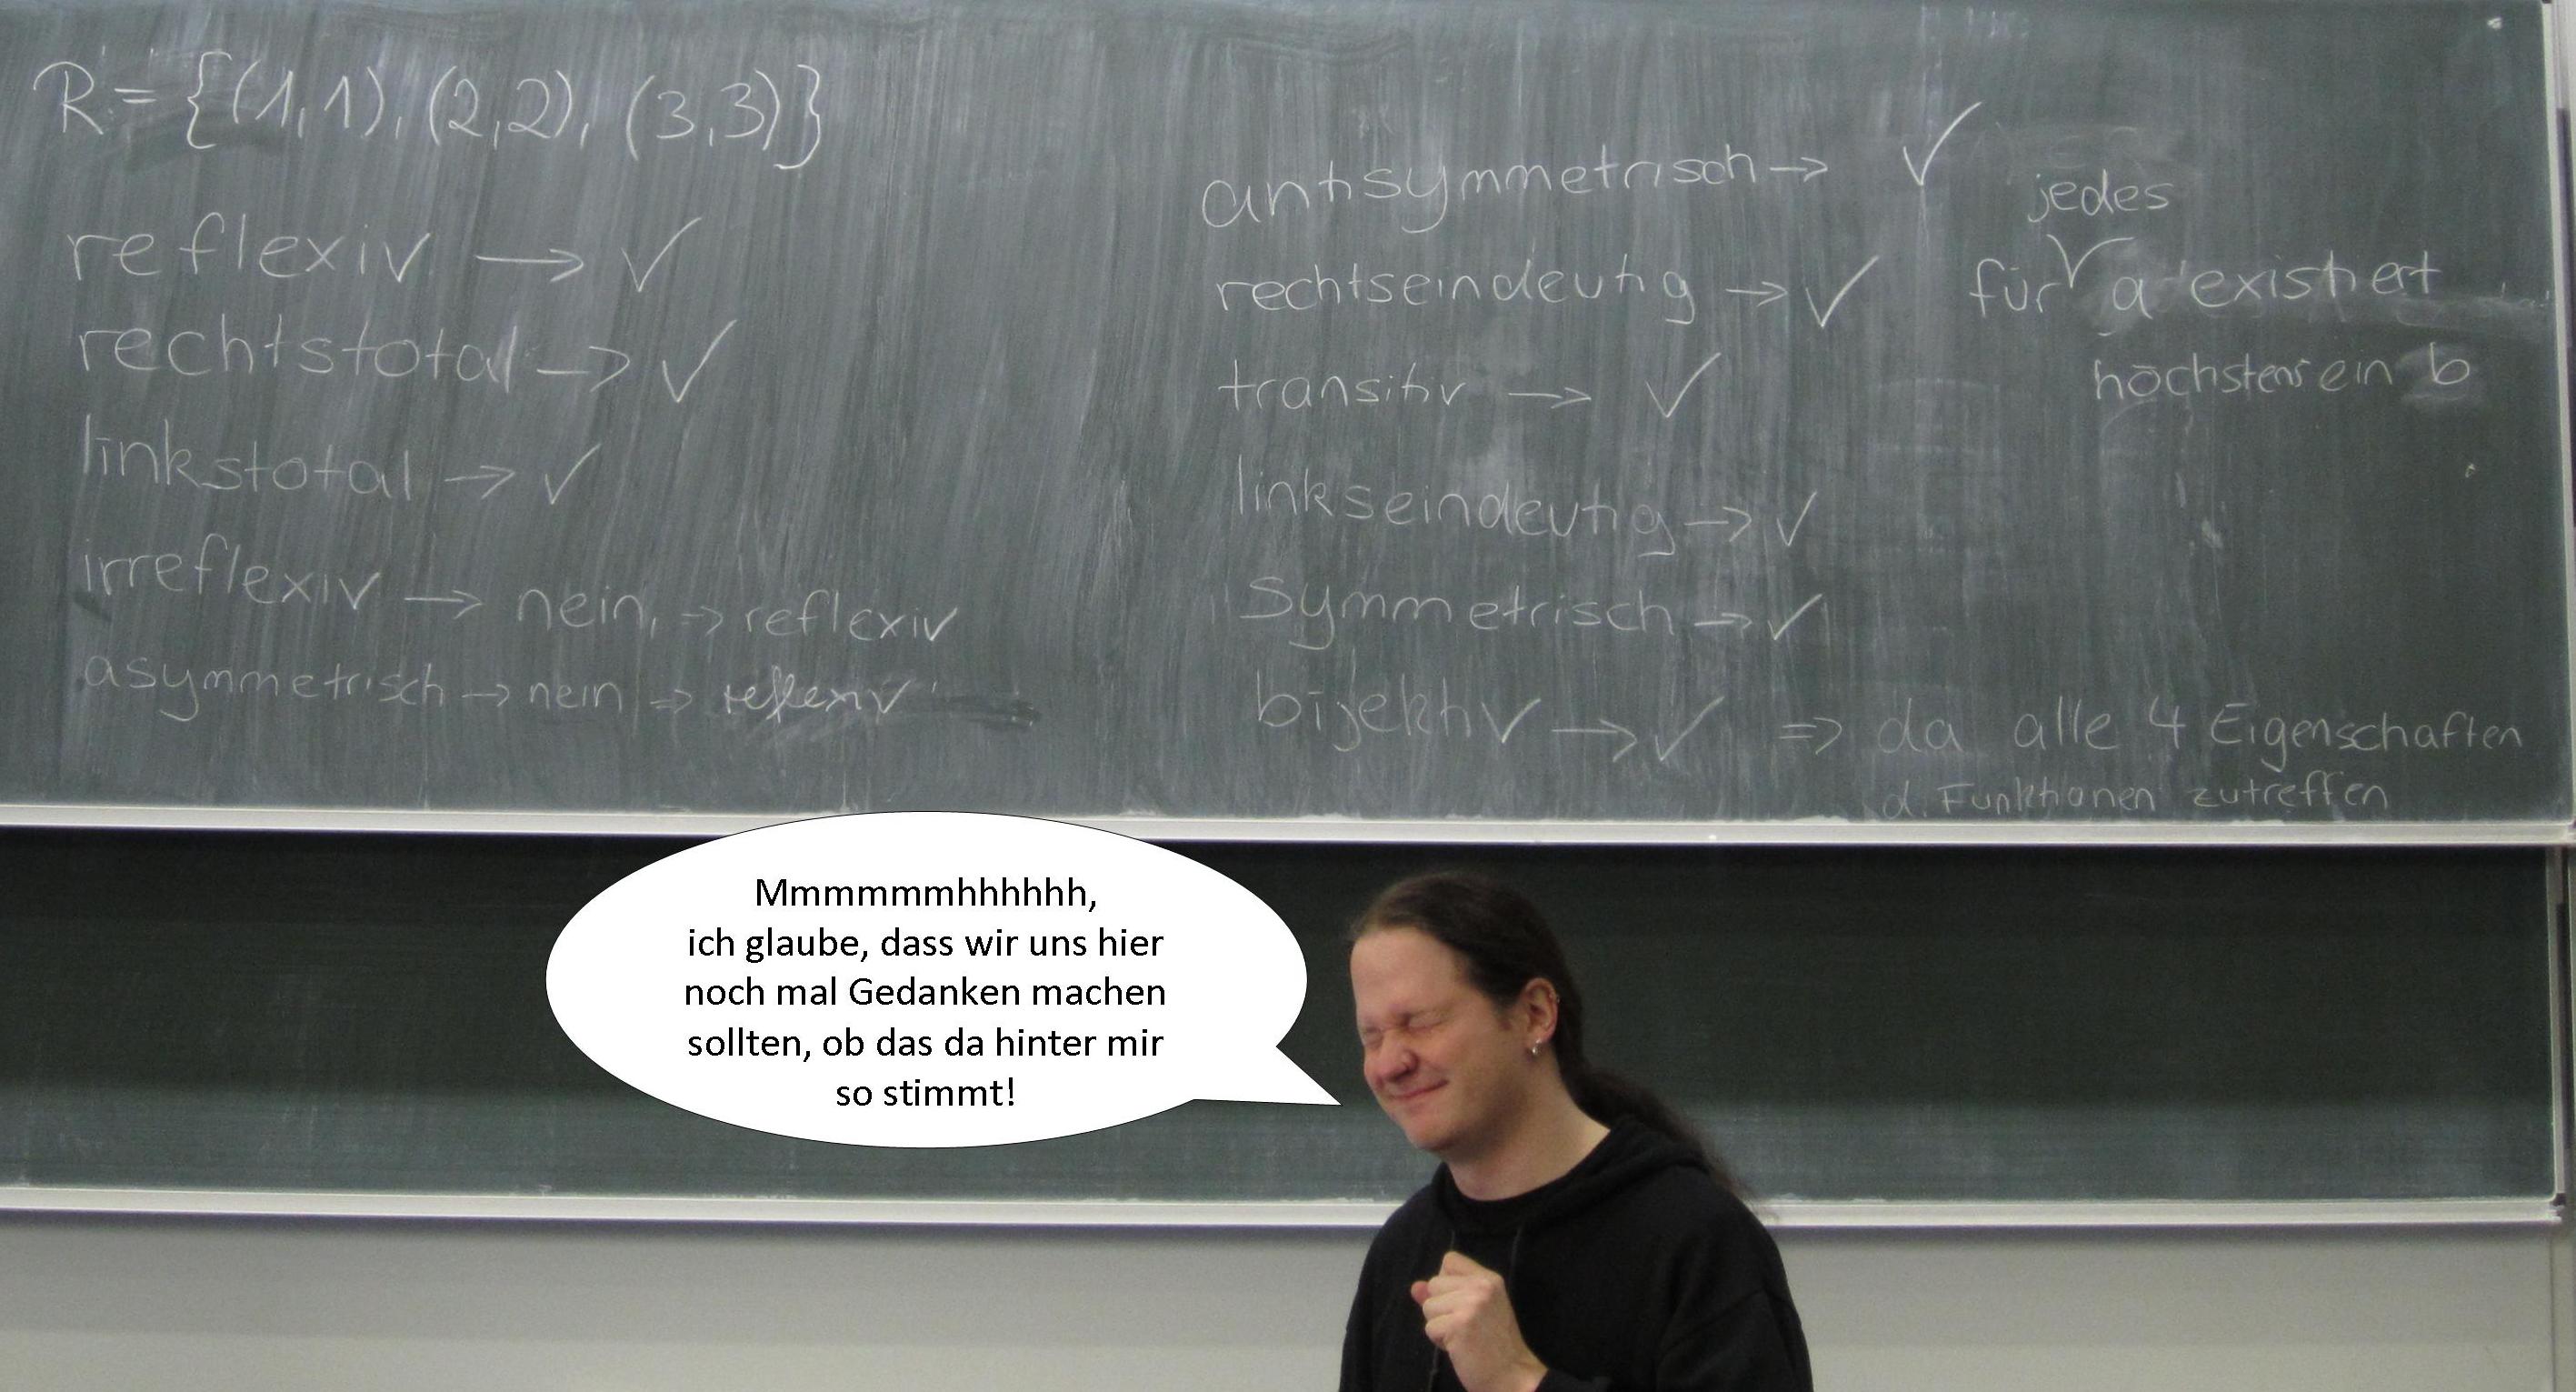 R = {(1,1), (2,2), (3,3)}
reflexiv → ✓
rechtstotal → ✓
linkstotal → ✓
irreflexiv → nein, ⇒ reflexiv
asymmetrisch → nein ⇒ reflexiv
antisymmetrisch → ✓
rechtseindeutig → ✓
jedes
für a existiert
höchstens ein b
transitiv → ✓
linkseindeutig → ✓
Symmetrisch → ✓
bijektiv → ✓ ⇒ da alle 4 Eigenschaften
d. Funktionen zutreffen
Mmmmmmhhhhhh,
ich glaube, dass wir uns hier
noch mal Gedanken machen
sollten, ob das da hinter mir
so stimmt!